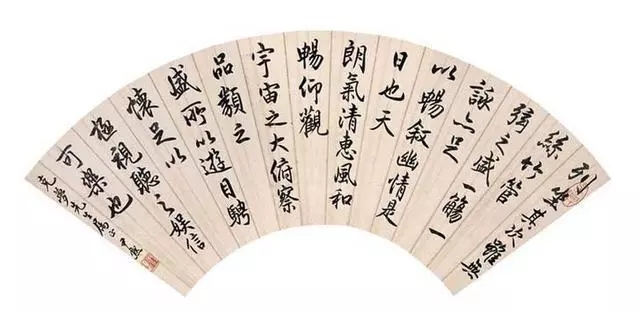 列坐其次雖無
絲竹管
弦之盛一觴一
詠亦足
以暢叙幽情是
日也天
朗氣清惠風和
暢仰觀
宇宙之大俯察
品類之
盛所以遊目騁
懷足以
極視聽之娱信
可樂也
先生屬